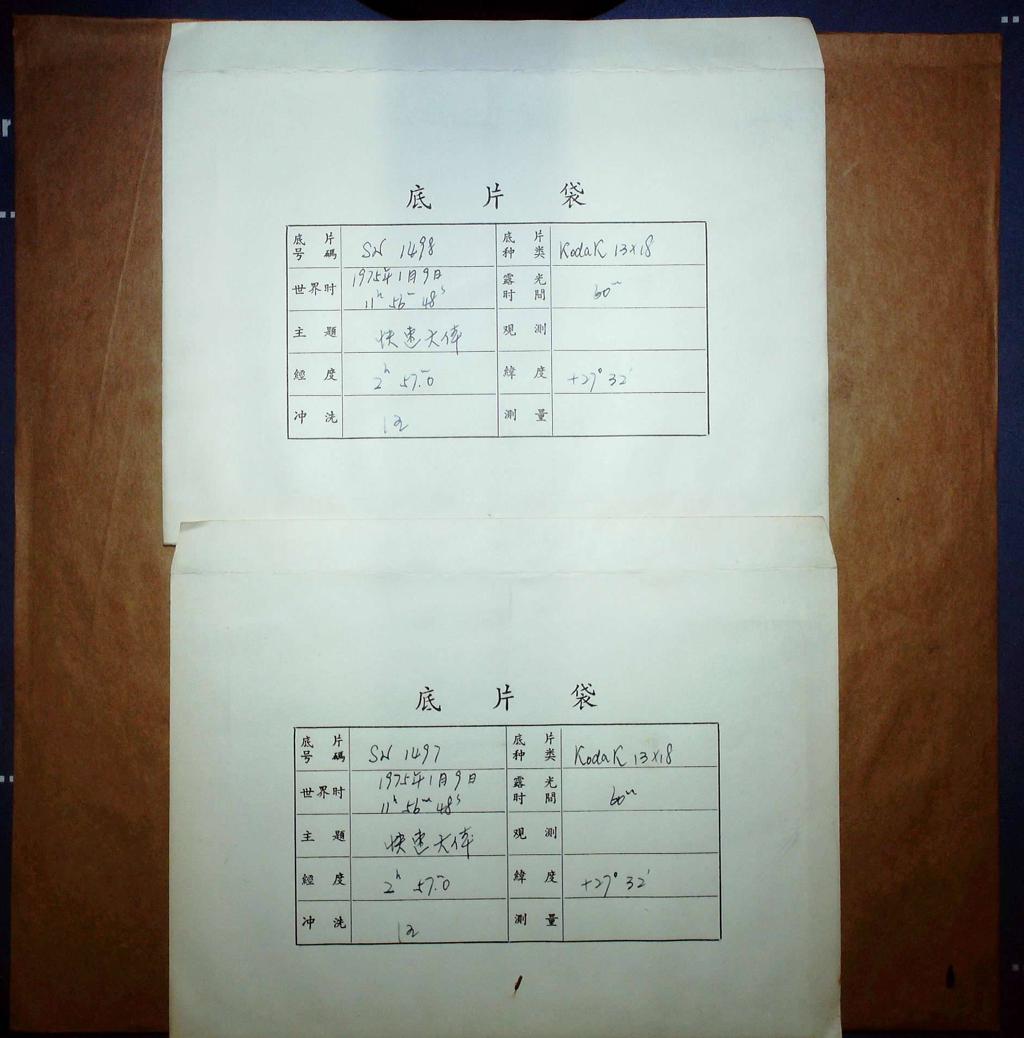 底片袋
底片号碼 SN 1498 底片种类 Kodak 13×18
世界时 1975年1月9日 11h 56m 48s 露光时間 60m
主題 快速天体 观測
經度 2h 57m.0 緯度 +27° 32'
冲洗 测量
底片袋
底片号碼 SN 1497 底片种类 Kodak 13×18
世界时 1975年1月9日 11h 56m 48s 露光时間 60m
主題 快速天体 观測
經度 2h 57m.0 緯度 +27° 32'
冲洗 测量